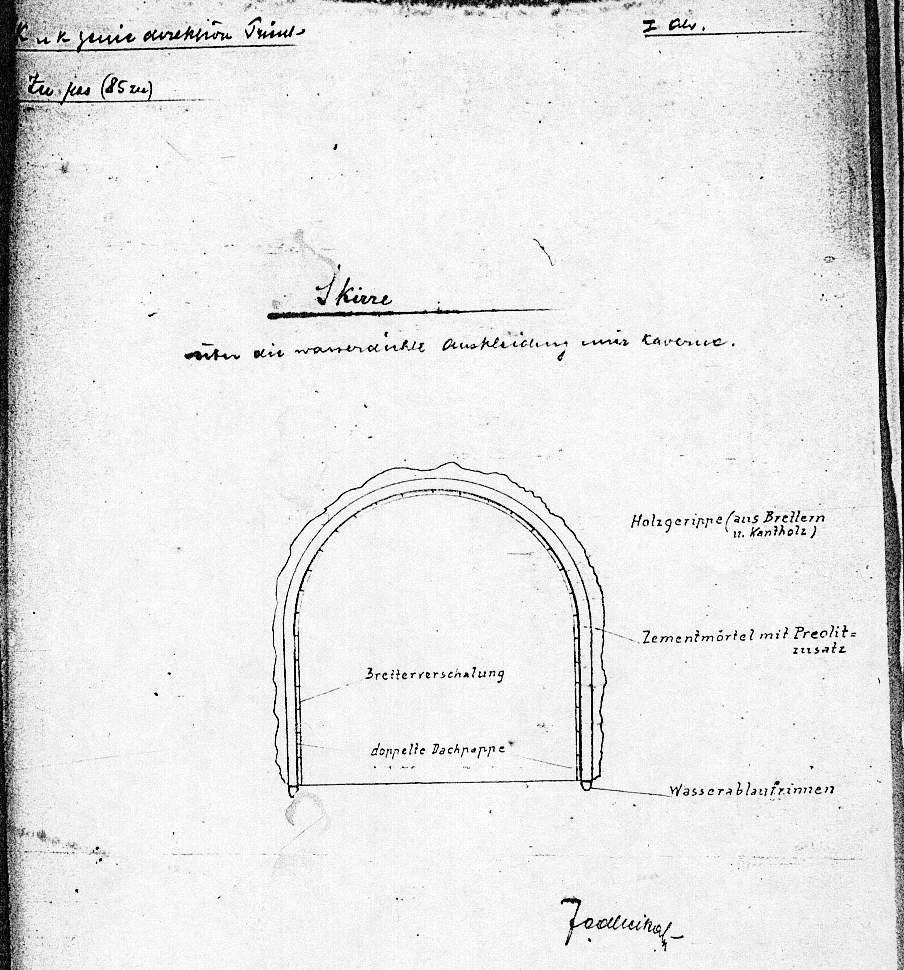 K u k Genie direktion Trient
I Abt.
Zu pos (85 zu)
Skizze
über die wasserdichte Auskleidung einer Kaverne.
Holzgerippe (aus Brettern
u. Kantholz)
Zementmörtel mit Preolit=
zusatz
Bretterverschalung
doppelte Dachpappe
Wasserablaufrinnen